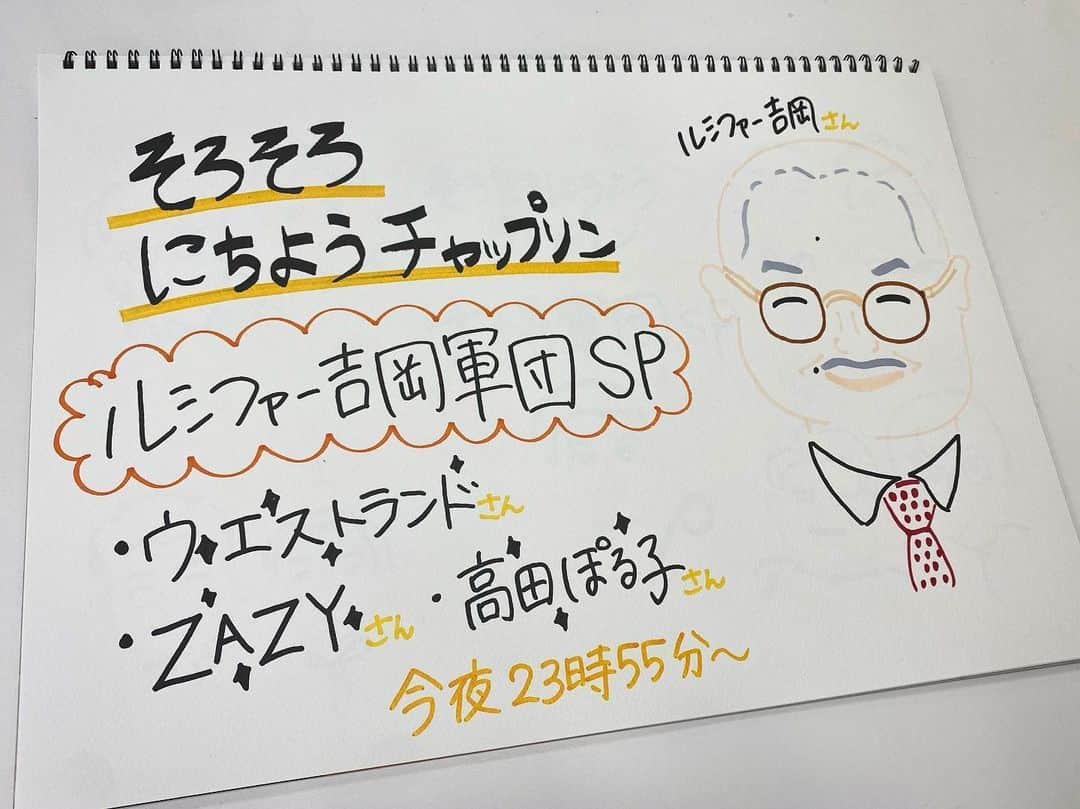 そろそろ
にちようチャップリン
ルシファー吉岡軍団SP
・ウエストランドさん
・ZAZYさん ・高田ぽる子さん
今夜23時55分～
ルシファー吉岡さん